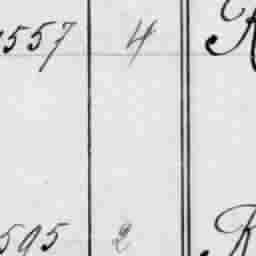 557 4 R
595 2 R